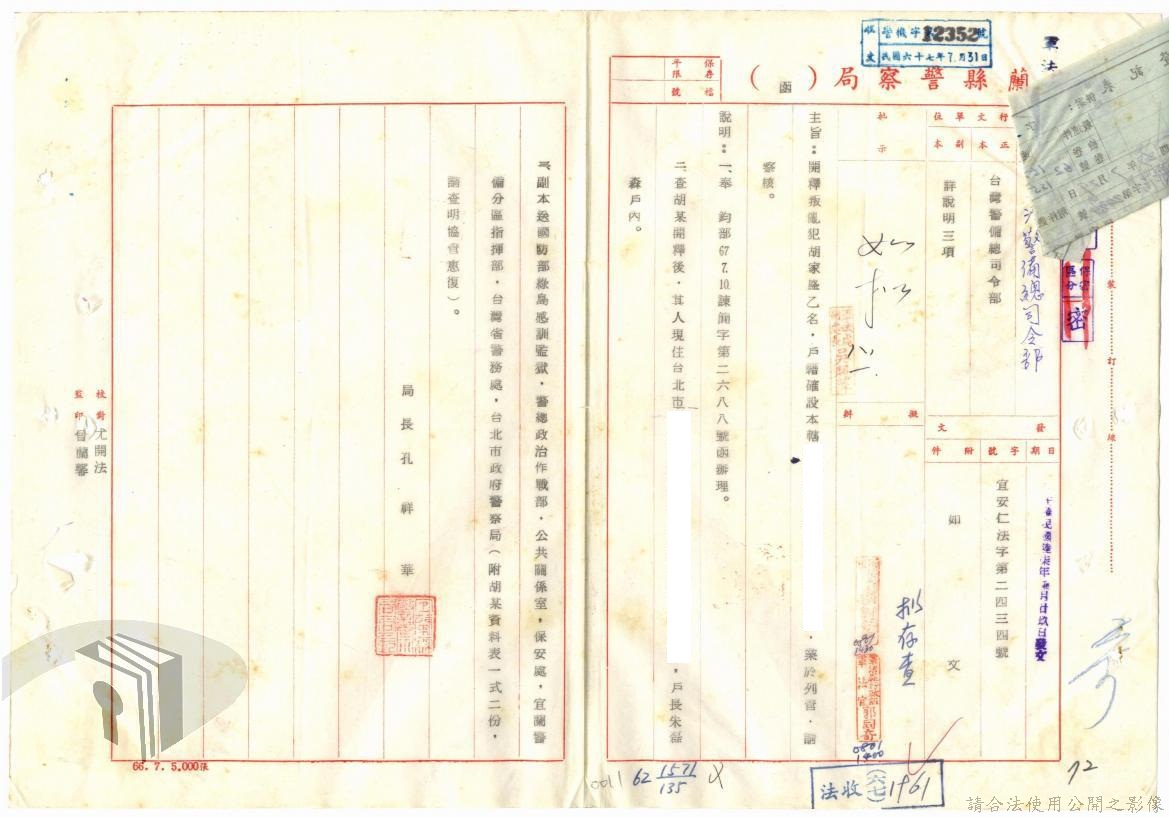 收文
警機字第12352號
民國六十七年7月31日
保存年限
檔號
蘭縣警察局（函）
登記表
軍法
保密區分
密
裝
訂
線
行文單位
正本
副本
台灣警備總司令部
詳說明三項
警備總司令部
批示
如擬
擬辦
擬存查
發文
日期
字號
附件
宜安仁法字第二四三四號
如文
主旨：開釋叛亂犯胡家隆乙名，戶籍確設本轄
，業於列管，請
察核。
說明：一、奉　鈞部67.7.10.諫簡字第二六八八號函辦理。
二、查胡某開釋後，其人現住台北市
，戶長朱磊
森戶內。
三、副本送國防部綠島感訓監獄，警總政治作戰部，公共關係室，保安處，宜蘭警
備分區指揮部，台灣省警務處，台北市政府警察局（附胡某資料表一式二份，
請查明協會惠復）。
局長孔祥華
校對尤開法
監印曾蘭馨
66.7.5,000張
0011 62 1571/135
0801
1400
法收(六七)1961
72
請合法使用公開之影像